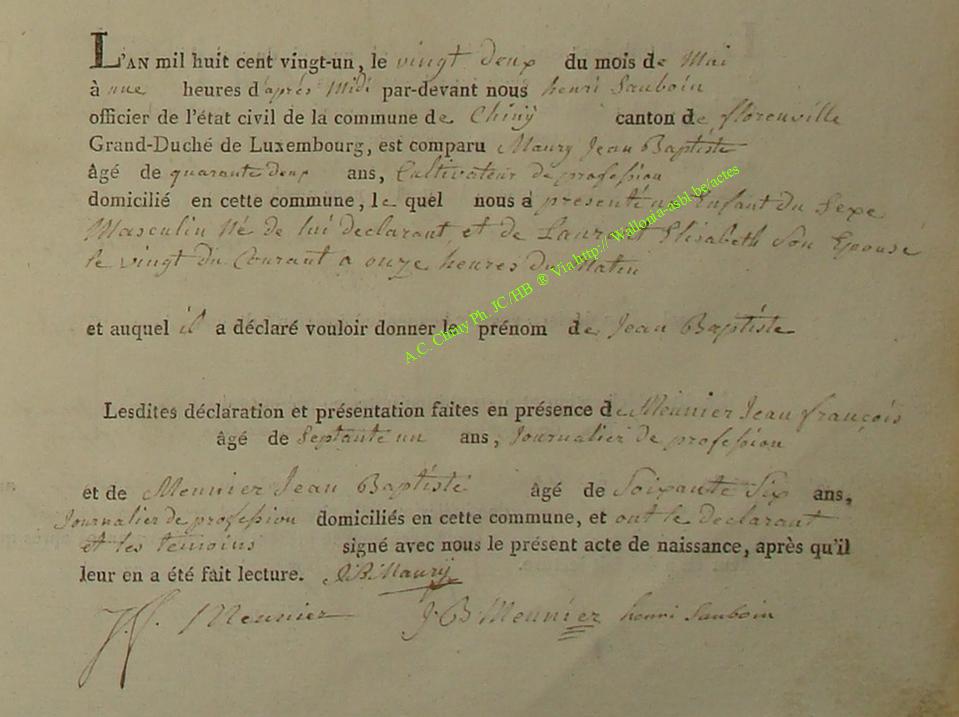 L'AN mil huit cent vingt-un, le vingt deux du mois de Mai
à une heures d'après Midi par-devant nous henri Sauboin
officier de l'état civil de la commune de Chiny canton de florenville
Grand-Duché de Luxembourg, est comparu Maury Jean Baptiste
âgé de quarante deux ans, Cultivateur de profession
domicilié en cette commune, le quel nous a presenté un Enfant du Sexe
Masculin Né de lui declarant et de Laurent Elisabeth Son Epouse
le vingt du Courant a onze heures du Matin
et auquel il a déclaré vouloir donner le prénom de Jean Baptiste
Lesdites déclaration et présentation faites en présence de Meunier Jean françois
âgé de Septante un ans, Journalier de profession
et de Meunier Jean Baptiste âgé de Soixante Six ans,
Journalier de profession domiciliés en cette commune, et ont le declarant
et les temoins signé avec nous le présent acte de naissance, après qu'il
leur en a été fait lecture. JB Maury
J.f. Meunier J.B Meunier henri Sauboin
A.C. Chiny Ph. JC /HB ® Via http:// Wallonia-asbl.be/actes